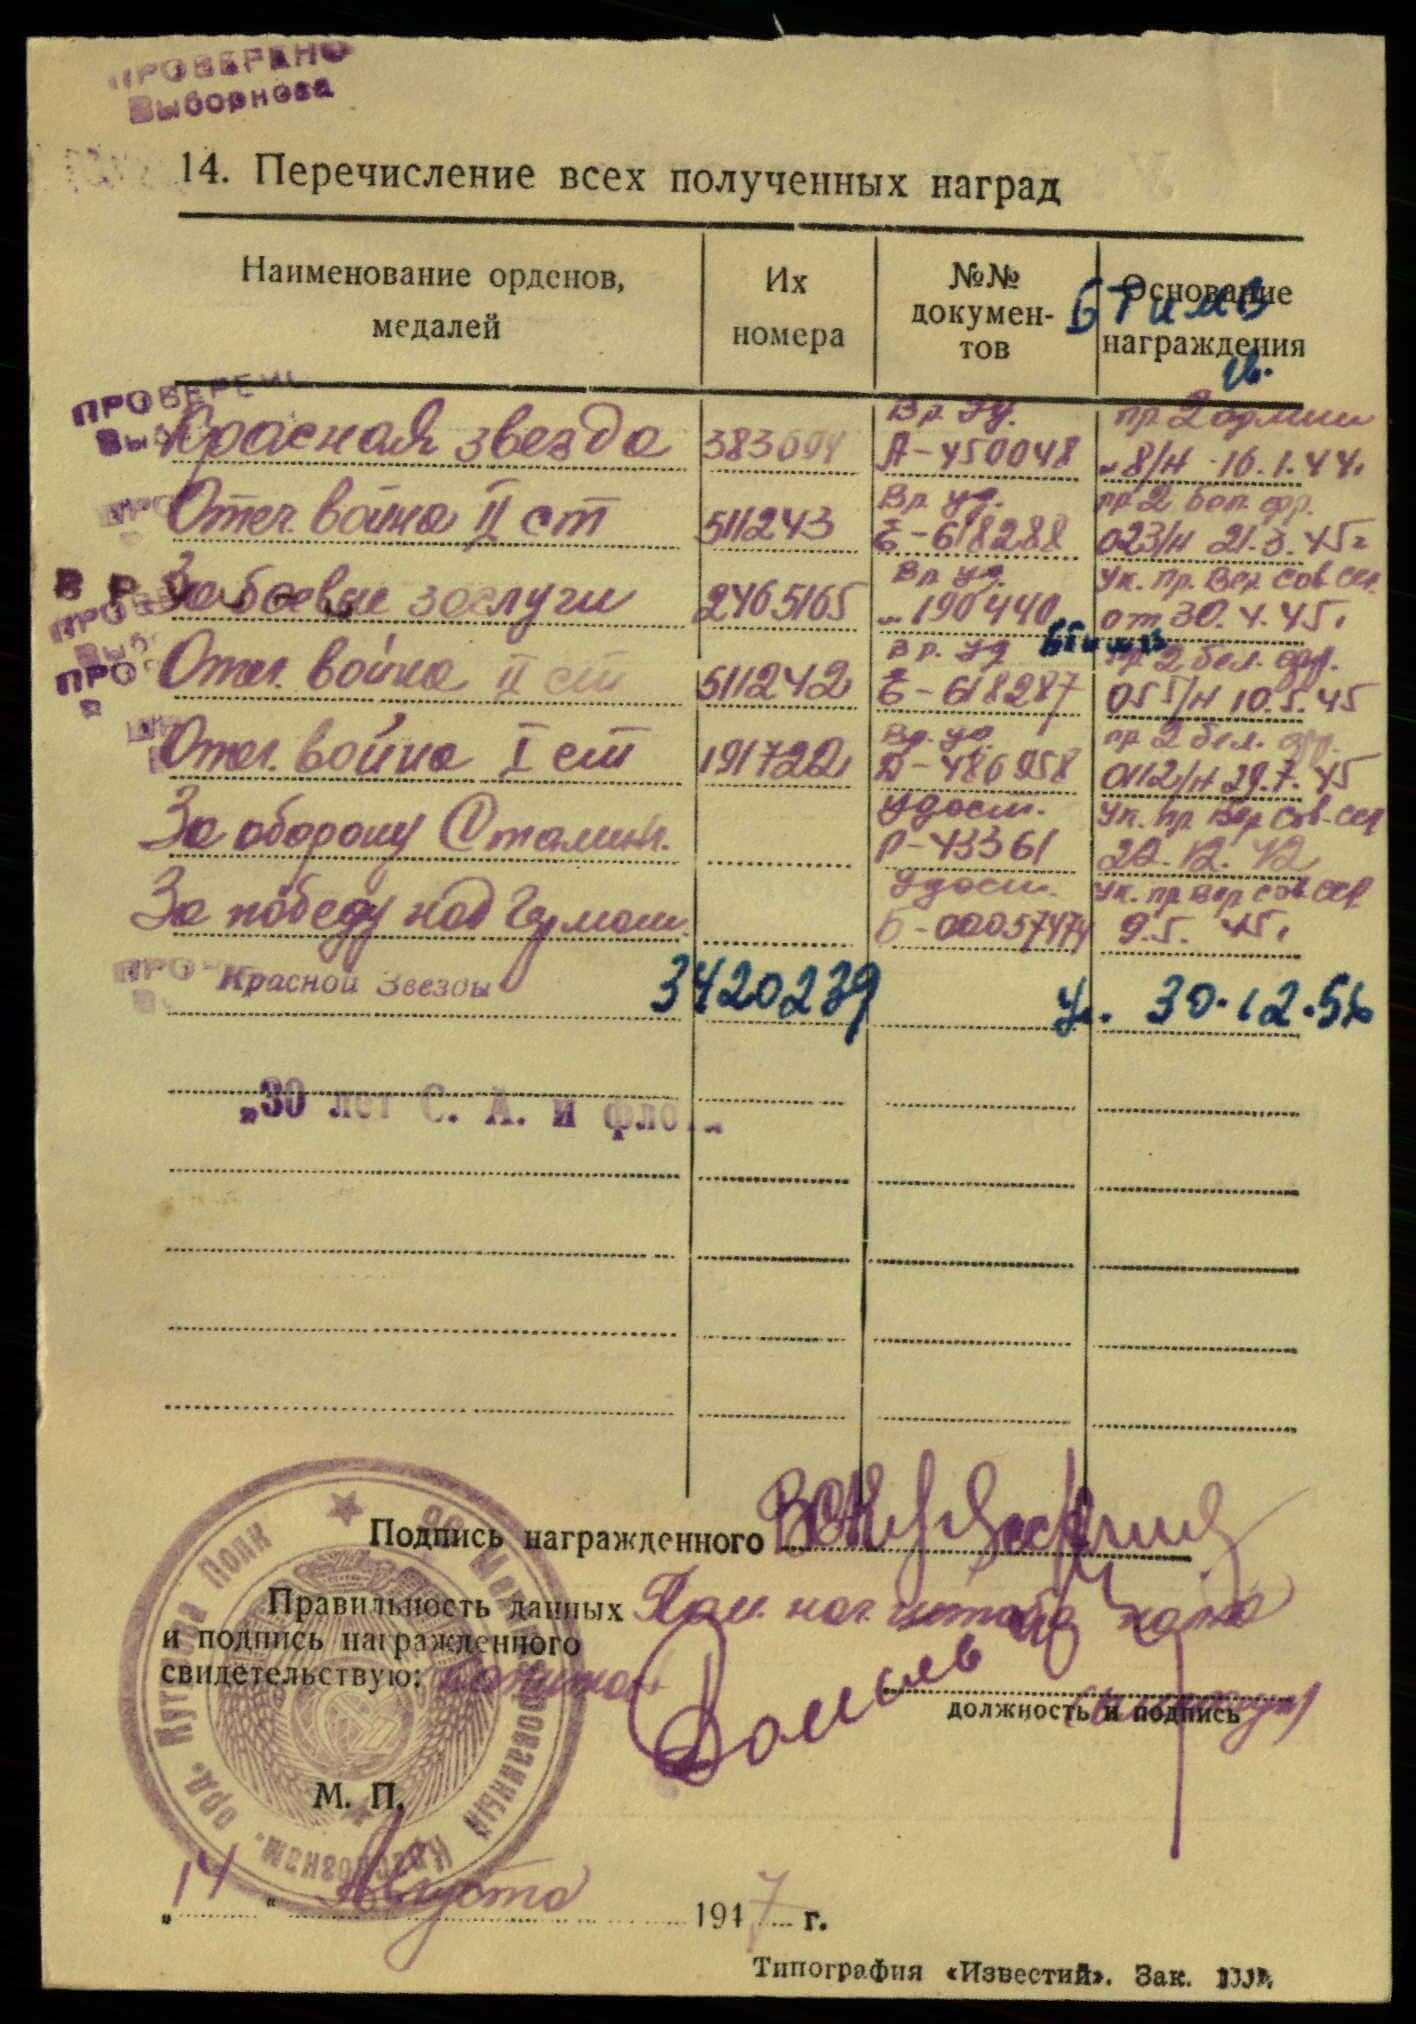 ПРОВЕРЕНО
Выборнова
14. Перечисление всех полученных наград
Наименование орденов, медалей
Их номера
№№ документов
Основание награждения
Красная звезда 383694 Вр. уд. А-450048 пр 2 армии 8/н 16.1.44г
Отеч. война II ст 511243 Вр. уд. Б-618288 пр 2 бел. фр. 023/н 21.3.45г
За боевые заслуги 2465165 Вр. уд. 190440 Ук. Пр. Вер. Сов. ссср от 30.4.45г
Отеч. война II ст 511242 Вр. уд Б-618287 пр 2 бел. фр. 055/н 10.5.45
Отеч. война I ст 191722 Вр. уд. Д-486958 пр 2 бел. фр. 0112/н 29.7.45
За оборону Сталингр. Удост. Р-43361 Ук. пр. Вер Сов. ссср 22.12.42
За победу над Герман. Удост. Б-00057474 Ук. пр Вер Сов. ссср 9.5.45г
Красной Звезды 3420239 Ук. 30.12.56
„30 лет С. А. и флота
Подпись награжденного
Правильность данных Пом. нач. штаба полка
и подпись награжденного
свидетельствую: капитан
должность и подпись
М. П.
„14“ Августа 1947 г.
Типография «Известий». Зак.